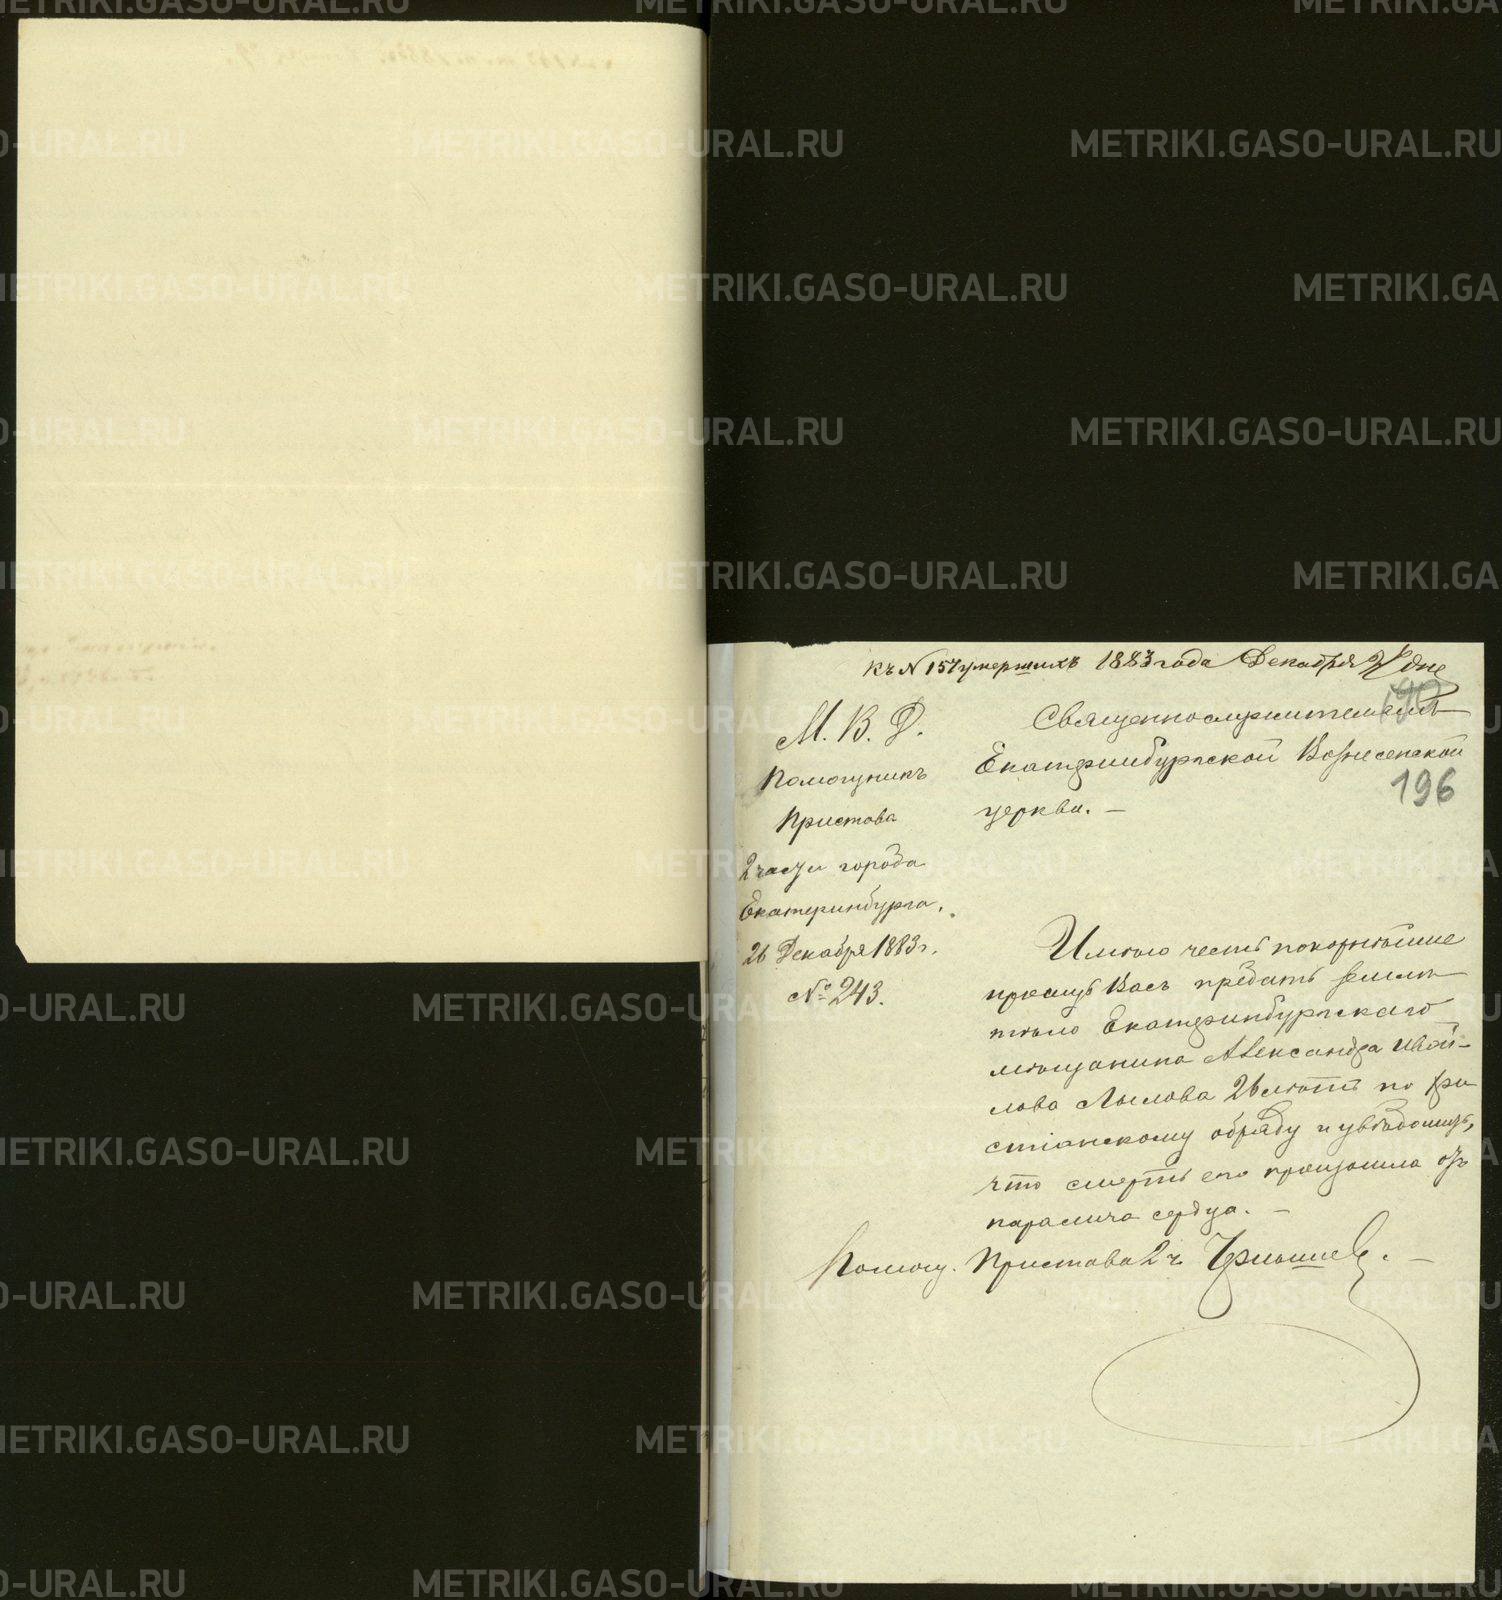 Къ № 157 умершихъ 1883 года Декабря дня
190
М. В. Д.
Помощникъ
Пристава
2 части города
Екатеринбурга.
26 Декабря 1883 г.
№ 243.
Священнослужителямъ
Екатеринбургской Вознесенской
церкви. —
196
Имѣю честь покорнѣйше
прошу Васъ предать землѣ
тѣло Екатеринбургскаго
мѣщанина Александра
лова 26 лѣтъ по хри
стіанскому обряду и увѣдомить,
что смерть его произошла отъ
паралича сердца. —
Помощ. Пристава 2 ч.
METRIKI.GASO-URAL.RU